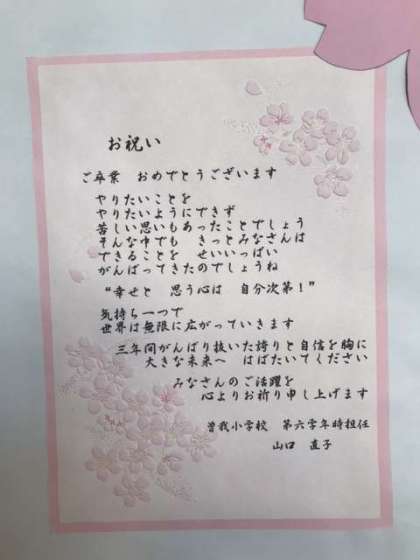 お祝い
ご卒業　おめでとうございます
やりたいことを
やりたいようにできず
苦しい思いもあったことでしょう
そんな中でも　きっとみなさんは
できることを　せいいっぱい
がんばってきたのでしょうね
“幸せと　思う心は　自分次第！”
気持ち一つで
世界は無限に広がっていきます
三年間がんばり抜いた誇りと自信を胸に
大きな未来へ　はばたいてください
みなさんのご活躍を
心よりお祈り申し上げます
曽我小学校　第六学年時担任
山口　直子